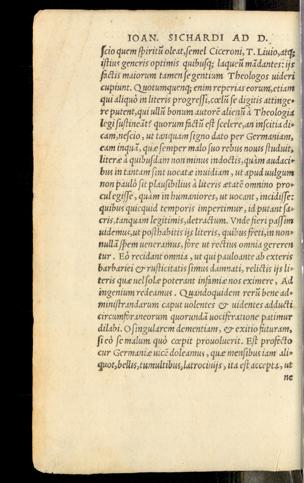 IOAN. SICHARDI AD D.
scio quem spiritũ oleat, semel Ciceroni, T. Liuio, atq;
istius generis optimis quibusq; laqueũ mãdantes: ijs
factis maiorum tamen se gentium Theologos uideri
cupiunt. Quotumquenq; enim reperias eorum, etiam
qui aliquò in literis progressi, cœlũ se digitis attinge-
re putent, qui ullũ bonum autorẽ alienũ à Theologia
legi sustineãt? quorum factũ est scelere, an inscitia di-
cam, nescio, ut tanquam signo dato per Germaniam,
eam inquã, quæ semper malo suo rebus nouis studuit,
literæ à quibusdam non minus indoctis, quàm audaci-
bus in tantam sint uocatæ inuidiam, ut apud uulgum
non paulò sit plausibilius à literis ætatẽ omnino pro-
cul egisse, quàm in humaniores, ut uocant, incidisse:
quibus quicquid temporis impertimur, id putant sa-
cris, tanquam legitimis, detractum. Vnde fieri passim
uidemus, ut posthabitis ijs literis, quibus freti, in non-
nullã spem ueneramus, fore ut rectius omnia gereren
tur. Eò recidant omnia, ut qui pauloante ab exteris
barbariei & rusticitatis simus damnati, relictis ijs li-
teris quæ uel solæ poterant infamiæ nos eximere, Ad
ingenium redeamus. Quandoquidem rerũ bene ad-
ministrandarum caput uolentes & uidentes adducti
circumforaneorum quorundã uociferatione patimur
dilabi. O singularem dementiam, & exitio futuram,
si eò se malum quò cœpit prouoluerit. Est profecto
cur Germaniæ uicẽ doleamus, quæ mensibus iam ali-
quot, bellis, tumultibus, latrocinijs, ita est accepta, ut
ne